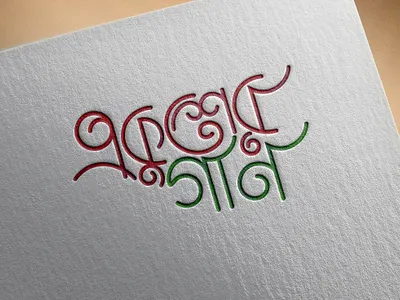 একুশের
গান